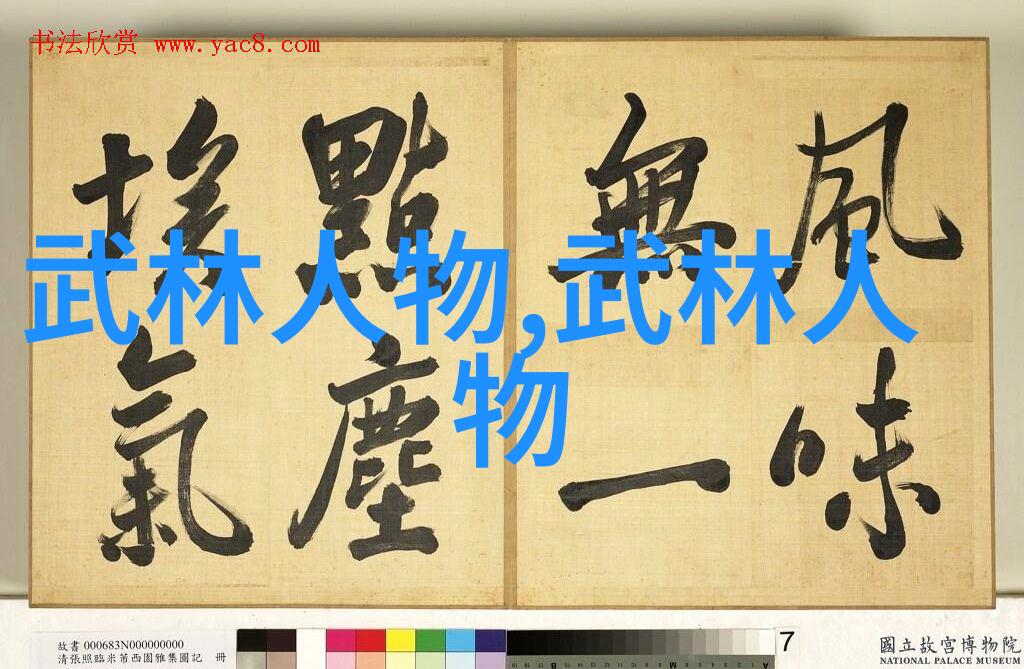 书法欣赏 www.yac8.com
風味
無一
點塵
埃氣
武林人物,武林人
物
故書 000683N000000000
清張照臨米芾西園雅集圖記 冊
7
國立故宮博物院
NATIONAL PALACE MUSEUM